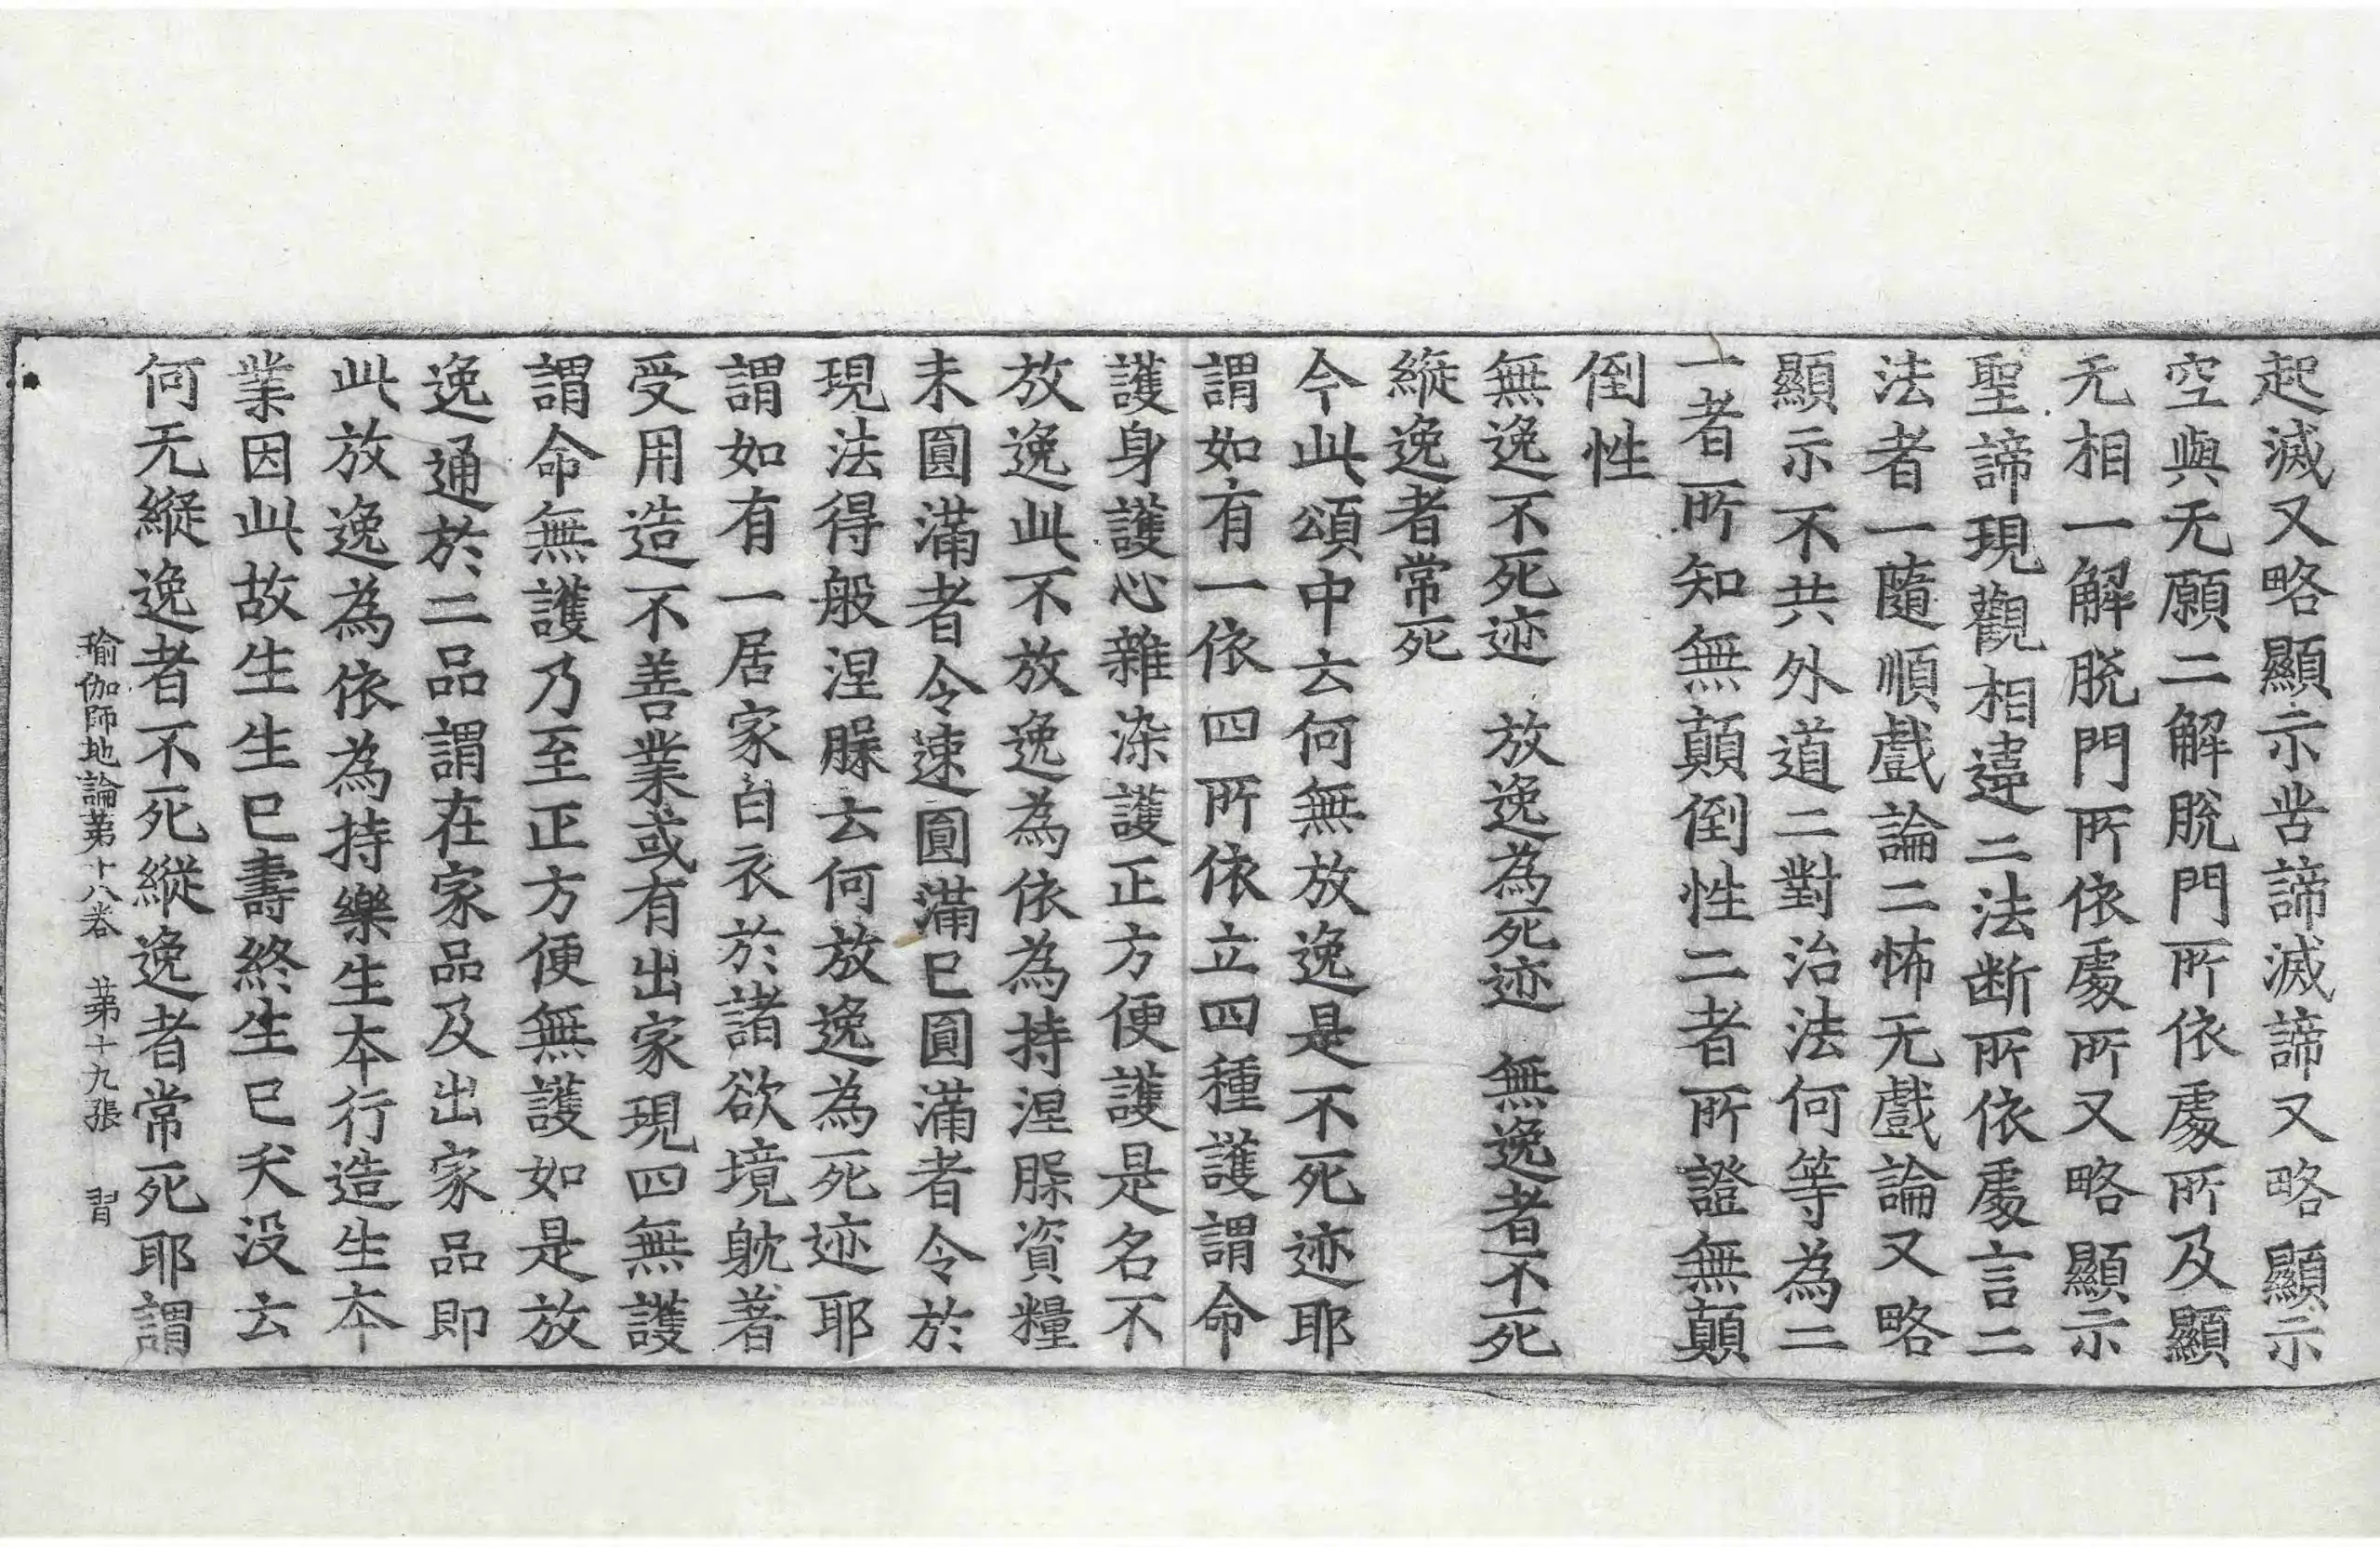 起滅又略顯示苦諦滅諦又略顯示
空與无願二解脫門所依處所及顯
无相一解脫門所依處所又略顯示
聖諦現觀相違二法断所依處言二
法者一隨順戲論二怖无戲論又略
顯示不共外道二對治法何等為二
一者所知無顛倒性二者所證無顛
倒性
無逸不死迹 放逸為死迹 無逸者不死
縱逸者常死
今此頌中云何無放逸是不死迹耶
謂如有一依四所依立四種護謂命
護身護心雜染護正方便護是名不
放逸此不放逸為依為持涅槃資糧
未圓滿者令速圓滿已圓滿者令於
現法得般涅槃云何放逸為死迹耶
謂如有一居家白衣於諸欲境躭著
受用造不善業或有出家現四無護
謂命無護乃至正方便無護如是放
逸通於二品謂在家品及出家品即
此放逸為依為持樂生本行造生本
業因此故生生已壽終生已夭没云
何无縱逸者不死縱逸者常死耶謂
瑜伽師地論苐十八卷 苐十九張 習